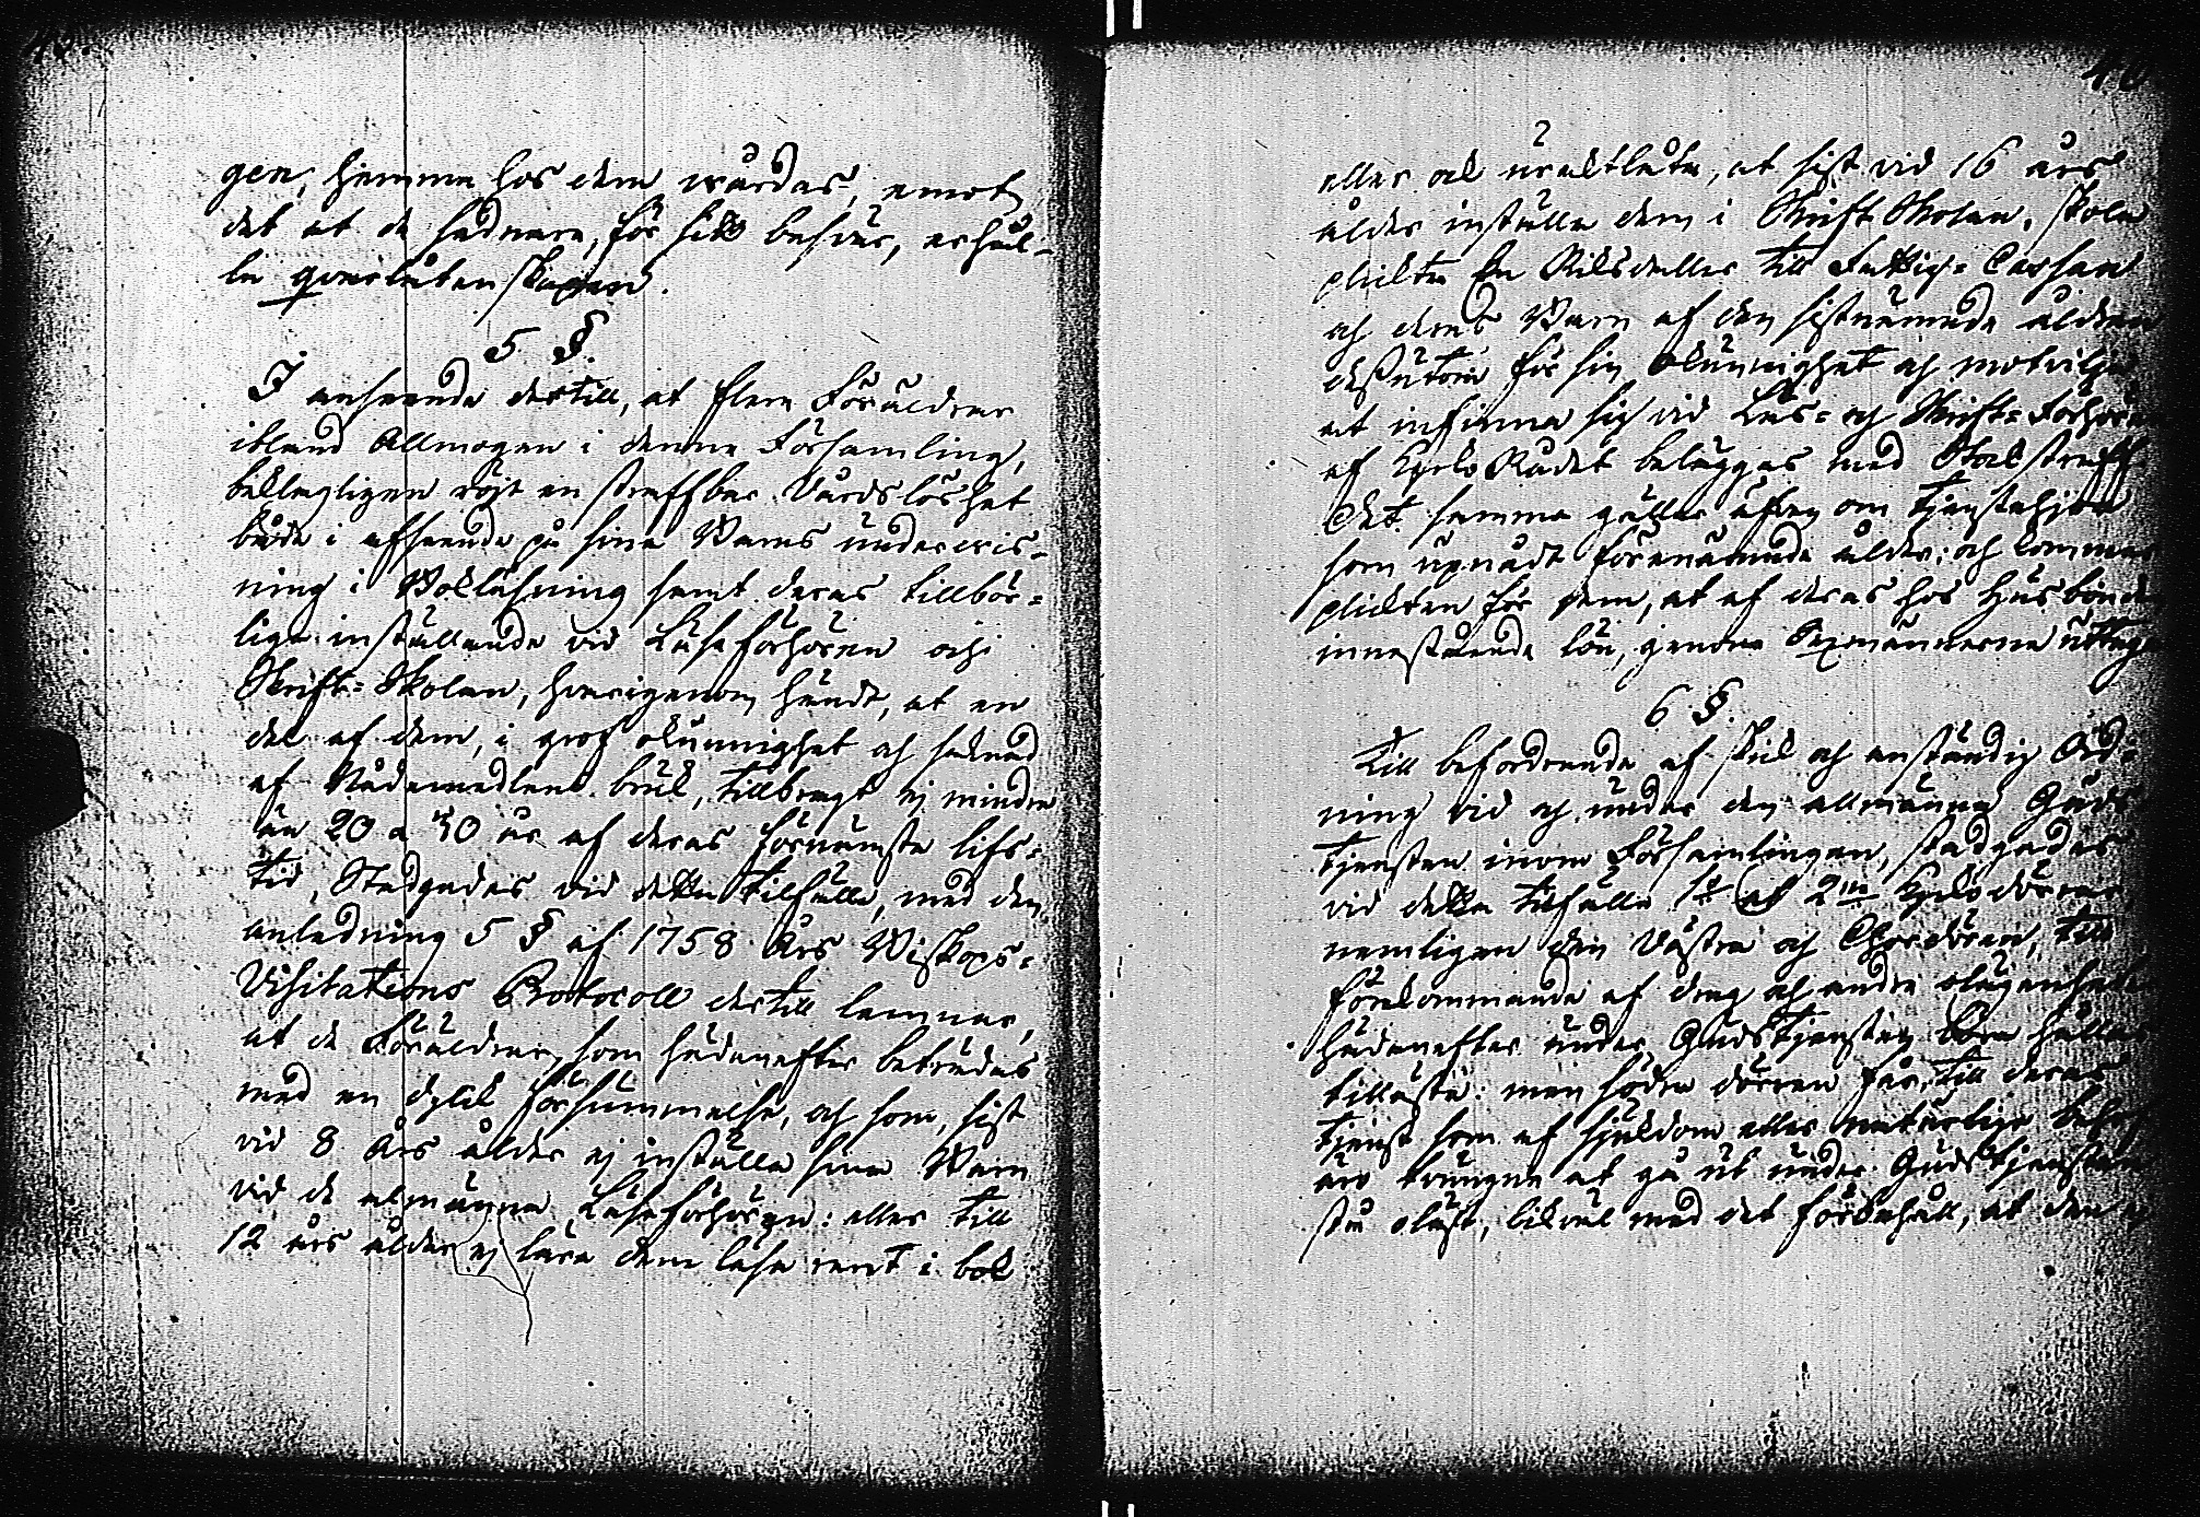 gen, hemma hos dem wårdas, emot
det at de sednare, för sitt besvär, erhål-
la qvarlåtenskapen.
5 §.
I anseende dertill, at flera Föräldrar
ibland Allmogen i denna Församling,
beklagligen röjt en straffbar Vårdslöshet
både i afseende på sina Barns underwis-
ning i Bokläsning samt deras tillbör-
liga inställande vid Läseförhören och i
Skrift-Skolan, hvarigenom händt, at en
del af dem, i grof okunnighet och saknad
af Nådemedlens bruk, tillbragt ej mindre
än 20 a 30 år af deras förnämsta lifs-
tid, Stadgades vid detta tillfälle, med den
anledning 5 § af 1758 Års Biskops-
Visitations Protocoll dertill lemnar,
at de Föräldrar, som hädanefter beträdas
med en dylik försummelse, och som, sist
vid 8 Års ålder ej inställa sina Barn
vid de almänna Läseförhören: eller till
12 års ålder ej lära dem läsa rent i bok
eller ock uraktlåta, at sist vid 16 års
ålder inställa dem i Skrift Skolan, skola
plickta En Riksdaller till Fattig-Cassan
och deras Barn af den sistnämnde åldren
dessutom för sin okunnighet och motvilja
at infinna sig vid Läs- och Skrift-Förhören
af KyrkoRådet beläggas med Stockstraff
Det samma gäller äfven om Tjenstehjon
som upnådt förenämnde ålder; och kommer
plickten för dem, at af deras hos Husbonden
innestående lön, genom Sexmännerna uttagas
6 §.
Till befordrande af skick och anständig Ord-
ning vid och under den allmänna Guds
tjensten inom Församlingen, stadgades
vid detta tillfälle 1o at 2ne Kyrkodörrar
nemligen den Västra och Chordören, till
förekommande af drag och andra olägenheter
hädanefter under Gudstjensten böra hållas
tillåste: men södra dörren får, till deras
tjenst som af sjukdom eller naturliga behof
äro tvungne at gå ut under Gudstjensten
stå oläst, likväl med det förbehåll, at den